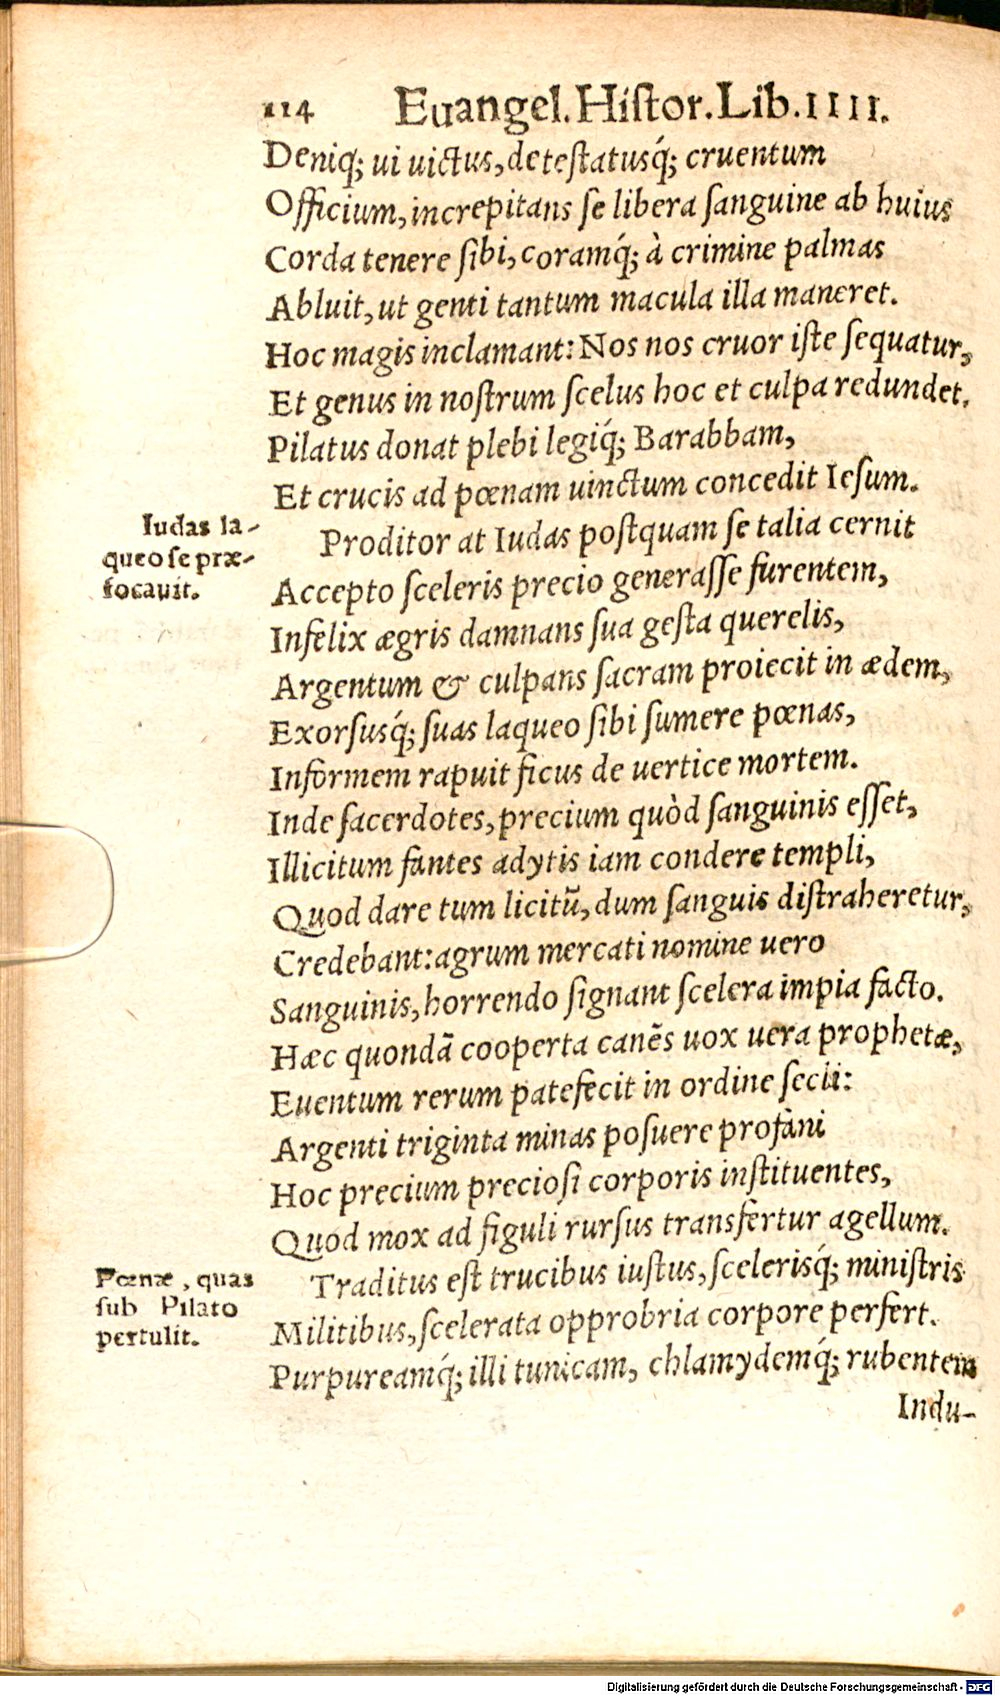 114 Euangel. Histor. Lib. IIII.
Deniq; ui uictus, detestatusq́; cruentum
Officium, increpitans se libera sanguine ab huius
Corda tenere sibi, coramq́; à crimine palmas
Abluit, ut genti tantum macula illa maneret.
Hoc magis inclamant: Nos nos cruor iste sequatur,
Et genus in nostrum scelus hoc et culpa redundet.
Pilatus donat plebi legiq́; Barabbam,
Et crucis ad pœnam uinctum concedit Iesum.
Iudas la-
queo se præ-
focauit.
Proditor at Iudas postquam se talia cernit
Accepto sceleris precio generasse furentem,
Infelix ægris damnans sua gesta querelis,
Argentum & culpans sacram proiecit in ædem,
Exorsusq́; suas laqueo sibi sumere pœnas,
Informem rapuit ficus de uertice mortem.
Inde sacerdotes, precium quòd sanguinis esset,
Illicitum fantes adytis iam condere templi,
Quod dare tum licitũ, dum sanguis distraheretur,
Credebant: agrum mercati nomine uero
Sanguinis, horrendo signant scelera impia facto.
Hæc quondã cooperta canẽs uox uera prophetæ,
Euentum rerum patefecit in ordine secli:
Argenti triginta minas posuere profani
Hoc precium preciosi corporis instituentes,
Quod mox ad figuli rursus transfertur agellum.
Pœnæ, quas
sub Pilato
pertulit.
Traditus est trucibus iustus, scelerisq́; ministris
Militibus, scelerata opprobria corpore perfert.
Purpureamq́; illi tunicam, chlamydemq́; rubentem
Indu-
Digitalisierung gefördert durch die Deutsche Forschungsgemeinschaft - DFG